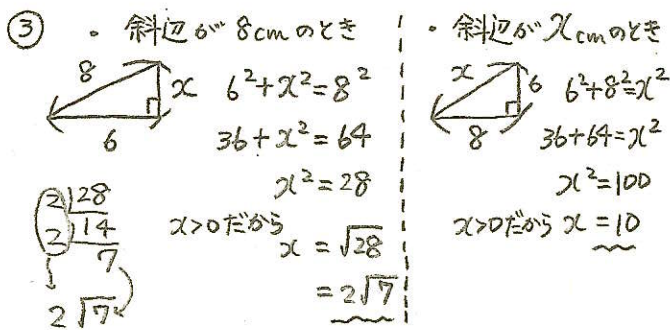 ③
・ 斜辺が 8cmのとき
8
x
6
6²+x²=8²
36+x²=64
x²=28
x>0だから
x = √28
= 2√7
2)28
2)14
7
2√7
・ 斜辺がxcmのとき
x
6
8
6²+8²=x²
36+64=x²
x²=100
x>0だから x = 10